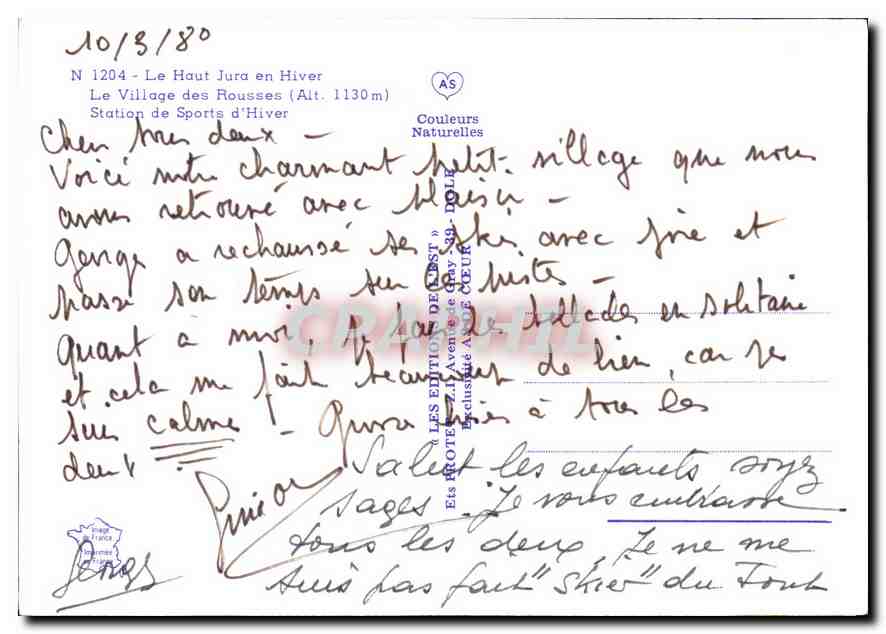 10/3/80
N 1204 - Le Haut Jura en Hiver
Le Village des Rousses (Alt. 1130 m)
Station de Sports d'Hiver
AS
Couleurs
Naturelles
Chers tous deux -
Voici notre charmant petit village que nous
avons retrouvé avec plaisir -
George a rechaussé ses skis avec joie et
passe son temps sur les pistes -
quant à moi, je fais des ballades en solitaire
et cela me fait beaucoup de bien, car je
suis calme ! - à tous les
deux
Salut les enfants soyez
sages. Je vous embrasse
tous les deux, Je ne me
suis pas fait "skier" du Tout
« LES EDITIONS DE L'EST »
Ets PROTET - Z.I., Avenue de Gray - 39 - DOLE
Exclusivité AS DE CŒUR
Image
de France
Imprimée
en France
CPAPHIL